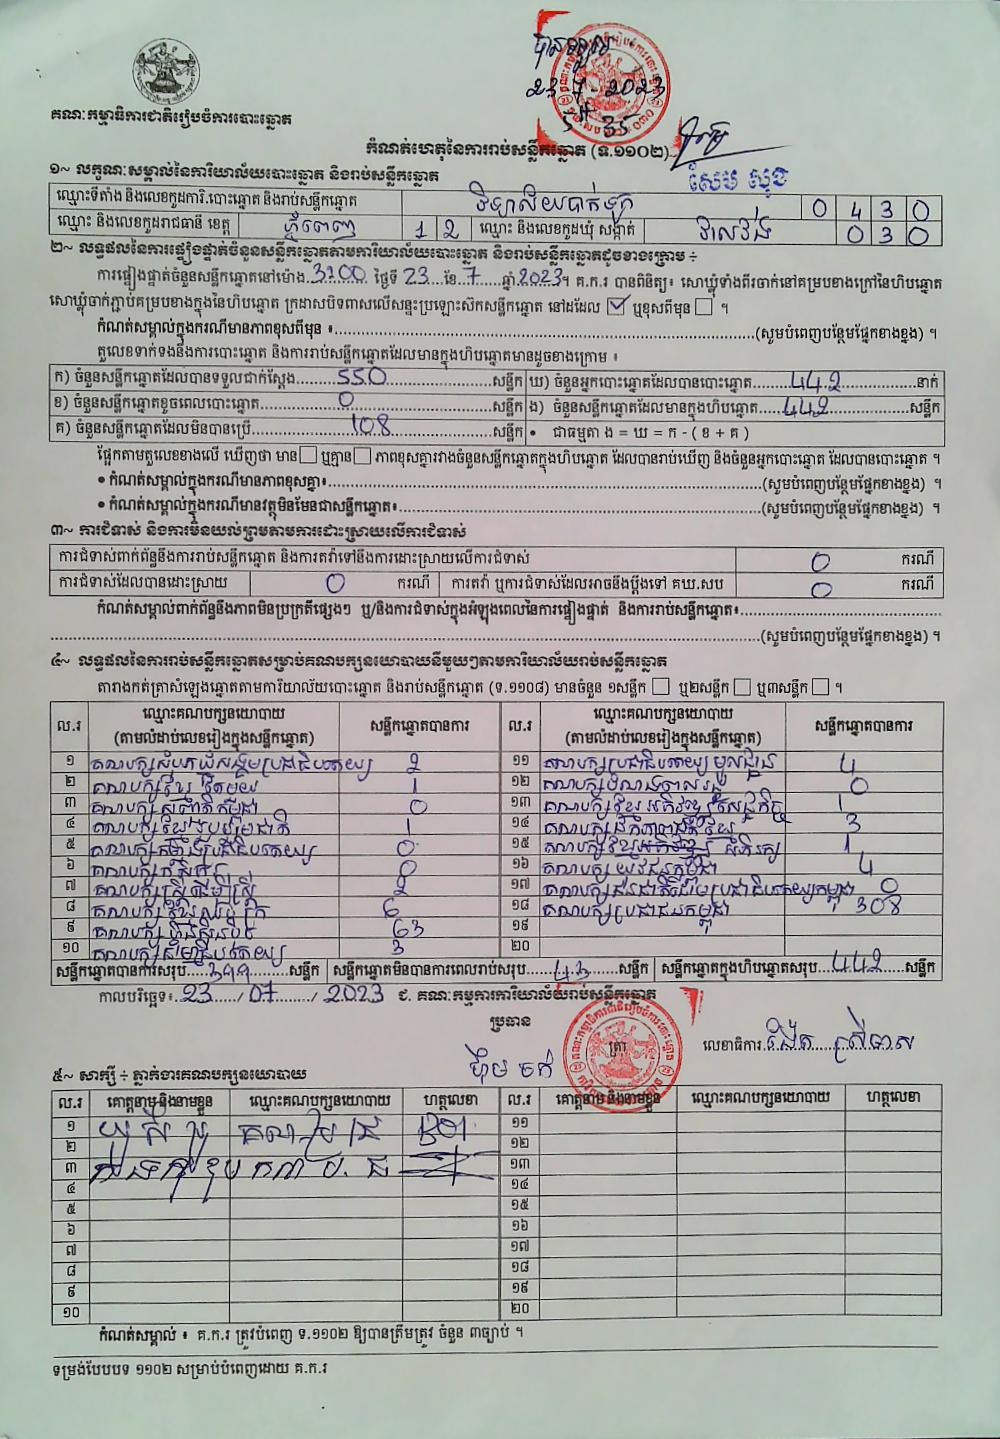 បានទទួល
23-7-2023
គណៈកម្មាធិការជាតិរៀបចំការបោះឆ្នោត
កំណត់ហេតុនៃការរាប់សន្លឹកឆ្នោត (ទ.១១០២)
១~ លក្ខណៈសម្គាល់នៃការិយាល័យបោះឆ្នោត និងរាប់សន្លឹកឆ្នោត
ឈ្មោះទីតាំង និងលេខកូដការិ.បោះឆ្នោត និងរាប់សន្លឹកឆ្នោត វិទ្យាល័យបាក់ទូក 0 4 3 0
ឈ្មោះ និងលេខកូដរាជធានី ខេត្ត ភ្នំពេញ 1 2 ឈ្មោះ និងលេខកូដឃុំ សង្កាត់ វាលវង់ 0 3 0
២~ លទ្ធផលនៃការផ្ទៀងផ្ទាត់ចំនួនសន្លឹកឆ្នោតតាមការិយាល័យបោះឆ្នោត និងរាប់សន្លឹកឆ្នោតដូចខាងក្រោម ÷
ការផ្ទៀងផ្ទាត់ចំនួនសន្លឹកឆ្នោតនៅម៉ោង 3:00 ថ្ងៃទី 23 ខែ 7 ឆ្នាំ 2023។ គ.ក.រ បានពិនិត្យ៖ សោឃ្លុំទាំងពីរចាក់នៅគម្របខាងក្រៅនៃហិបឆ្នោត
សោឃ្លុំចាក់ភ្ជាប់គម្របខាងក្នុងនៃហិបឆ្នោត ក្រដាសបិទពាសលើសន្ទះប្រឡោះស៊កសន្លឹកឆ្នោត នៅដដែល ☑ ឬខុសពីមុន ☐ ។
កំណត់សម្គាល់ក្នុងករណីមានភាពខុសពីមុន ៖ (សូមបំពេញបន្ថែមផ្នែកខាងខ្នង) ។
តួលេខទាក់ទងនឹងការបោះឆ្នោត និងការរាប់សន្លឹកឆ្នោតដែលមានក្នុងហិបឆ្នោតមានដូចខាងក្រោម ៖
ក) ចំនួនសន្លឹកឆ្នោតដែលបានទទួលជាក់ស្តែង 550 សន្លឹក ឃ) ចំនួនអ្នកបោះឆ្នោតដែលបានបោះឆ្នោត 442 នាក់
ខ) ចំនួនសន្លឹកឆ្នោតខូចពេលបោះឆ្នោត 0 សន្លឹក ង) ចំនួនសន្លឹកឆ្នោតដែលមានក្នុងហិបឆ្នោត 442 សន្លឹក
គ) ចំនួនសន្លឹកឆ្នោតដែលមិនបានប្រើ 108 សន្លឹក • ជាធម្មតា ង = ឃ = ក - ( ខ + គ )
ផ្អែកតាមតួលេខខាងលើ ឃើញថា មាន ☐ ឬគ្មាន ☐ ភាពខុសគ្នារវាងចំនួនសន្លឹកឆ្នោតក្នុងហិបឆ្នោត ដែលបានរាប់ឃើញ និងចំនួនអ្នកបោះឆ្នោត ដែលបានបោះឆ្នោត ។
• កំណត់សម្គាល់ក្នុងករណីមានភាពខុសគ្នា៖ (សូមបំពេញបន្ថែមផ្នែកខាងខ្នង) ។
• កំណត់សម្គាល់ក្នុងករណីមានវត្ថុមិនមែនជាសន្លឹកឆ្នោត៖ (សូមបំពេញបន្ថែមផ្នែកខាងខ្នង) ។
៣~ ការជំទាស់ និងការមិនយល់ព្រមតាមការដោះស្រាយលើការជំទាស់
ការជំទាស់ពាក់ព័ន្ធនឹងការរាប់សន្លឹកឆ្នោត និងការតវ៉ាទៅនឹងការដោះស្រាយលើការជំទាស់ 0 ករណី
ការជំទាស់ដែលបានដោះស្រាយ 0 ករណី ការតវ៉ា ឬការជំទាស់ដែលអាចនឹងប្តឹងទៅ គឃ.សប 0 ករណី
កំណត់សម្គាល់ពាក់ព័ន្ធនឹងភាពមិនប្រក្រតីផ្សេងៗ ឬ/និងការជំទាស់ក្នុងអំឡុងពេលនៃការផ្ទៀងផ្ទាត់ និងការរាប់សន្លឹកឆ្នោត៖
(សូមបំពេញបន្ថែមផ្នែកខាងខ្នង) ។
៤~ លទ្ធផលនៃការរាប់សន្លឹកឆ្នោតសម្រាប់គណបក្សនយោបាយនីមួយៗតាមការិយាល័យរាប់សន្លឹកឆ្នោត
តារាងកត់ត្រាសំឡេងឆ្នោតតាមការិយាល័យបោះឆ្នោត និងរាប់សន្លឹកឆ្នោត (ទ.១១០៨) មានចំនួន ១សន្លឹក ☐ ឬ២សន្លឹក ☐ ឬ៣សន្លឹក ☐ ។
ល.រ ឈ្មោះគណបក្សនយោបាយ (តាមលំដាប់លេខរៀងក្នុងសន្លឹកឆ្នោត) សន្លឹកឆ្នោតបានការ ល.រ ឈ្មោះគណបក្សនយោបាយ (តាមលំដាប់លេខរៀងក្នុងសន្លឹកឆ្នោត) សន្លឹកឆ្នោតបានការ
១ គណបក្សសំបុកឃ្មុំសង្គមប្រជាធិបតេយ្យ 2 ១១ គណបក្សប្រជាធិបតេយ្យមូលដ្ឋាន 4
២ គណបក្សខ្មែរតែមួយ 1 ១២ 0
៣ គណបក្សសញ្ជាតិកម្ពុជា 0 ១៣ គណបក្សខ្មែរអភិវឌ្ឍន៍សេដ្ឋកិច្ច 1
៤ គណបក្សខ្មែររួបរួមជាតិ 1 ១៤ គណបក្សឯកភាពជាតិខ្មែរ 3
៥ គណបក្សកម្លាំងប្រជាធិបតេយ្យ 0 ១៥ គណបក្សខ្មែរអភិរក្ស 1
៦ គណបក្សកសិករ 0 ១៦ គណបក្សយុវជនកម្ពុជា 4
៧ គណបក្សស្ត្រីដើម្បីស្ត្រី 2 ១៧ គណបក្សជនជាតិដើមប្រជាធិបតេយ្យកម្ពុជា 0
៨ គណបក្សខ្មែរឈប់ក្រ 6 ១៨ គណបក្សប្រជាជនកម្ពុជា 308
៩ គណបក្សហ៊្វុនស៊ិនប៉ិច 63 ១៩
១០ គណបក្សធម្មាធិបតេយ្យ 3 ២០
សន្លឹកឆ្នោតបានការសរុប 399 សន្លឹក សន្លឹកឆ្នោតមិនបានការពេលរាប់សរុប 43 សន្លឹក សន្លឹកឆ្នោតក្នុងហិបឆ្នោតសរុប 442 សន្លឹក
កាលបរិច្ឆេទ៖ 23 / 07 / 2023 ជ. គណៈកម្មការការិយាល័យរាប់សន្លឹកឆ្នោត
ប្រធាន
ត្រា លេខាធិការ
៥~ សាក្សី ÷ ភ្នាក់ងារគណបក្សនយោបាយ
ល.រ គោត្តនាម និងនាមខ្លួន ឈ្មោះគណបក្សនយោបាយ ហត្ថលេខា ល.រ គោត្តនាម និងនាមខ្លួន ឈ្មោះគណបក្សនយោបាយ ហត្ថលេខា
១ ១១
២ ១២
៣ ១៣
៤ ១៤
៥ ១៥
៦ ១៦
៧ ១៧
៨ ១៨
៩ ១៩
១០ ២០
កំណត់សម្គាល់ ៖ គ.ក.រ ត្រូវបំពេញ ទ.១១០២ ឱ្យបានត្រឹមត្រូវ ចំនួន ៣ច្បាប់ ។
ទម្រង់បែបបទ ១១០២ សម្រាប់បំពេញដោយ គ.ក.រ